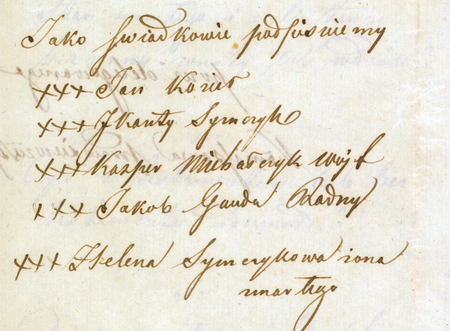 Jako swiadkowie podpisuiemy
+++ Jan Kozieł
+++ JKanty Symczyk
+++ Kasper Michalczyk Wójt
+++ Jakob Gauda Radny
+++ Helena Symczykowa żona
zmarłego